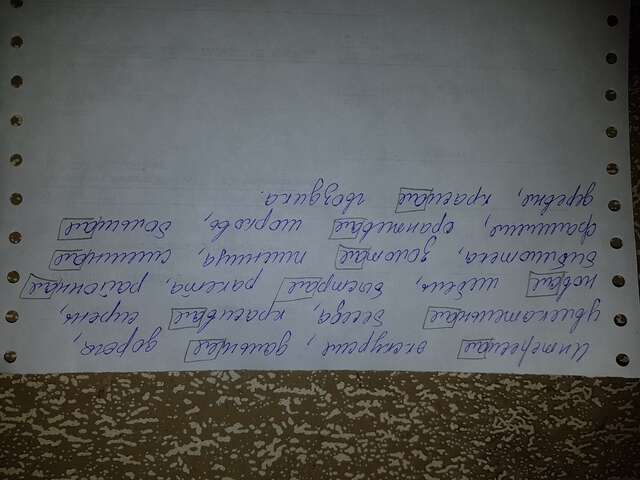 Интересная экскурсия, дальняя дорога,
увлекательная беседа, красивая сирень,
новая мебель, быстрая ракета, районная
библиотека, золотая пшеница, смешная
фамилия, оранжевая морковь, большая
деревня, красная гвоздика.